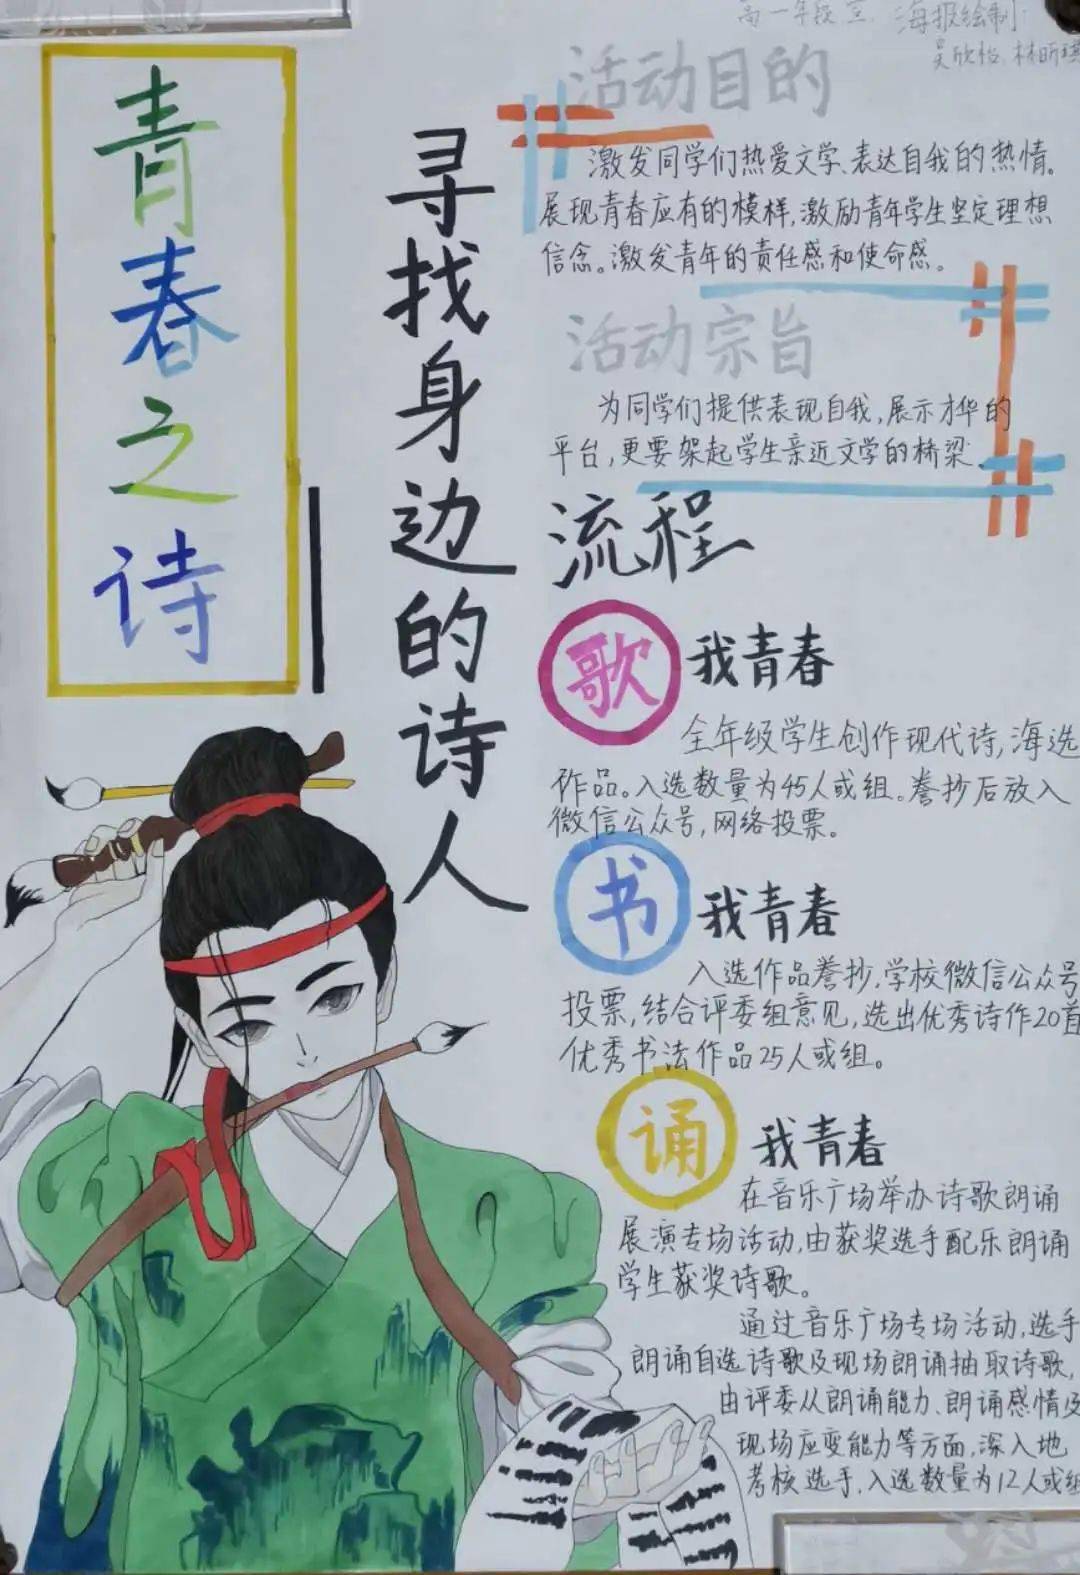 高一年段宣 海报绘制:
吴欣怡、林昕琪
青春之诗
寻找身边的诗人
活动目的
激发同学们热爱文学、表达自我的热情。
展现青春应有的模样,激励青年学生坚定理想
信念。激发青年的责任感和使命感。
活动宗旨
为同学们提供表现自我,展示才华的
平台,更要架起学生亲近文学的桥梁
流程
歌我青春
全年级学生创作现代诗,海选
作品。入选数量为45人或组。誊抄后放入
微信公众号,网络投票。
书我青春
入选作品誊抄,学校微信公众号
投票,结合评委组意见,选出优秀诗作20首
优秀书法作品25人或组。
诵我青春
在音乐广场举办诗歌朗诵
展演专场活动,由获奖选手配乐朗诵
学生获奖诗歌。
通过音乐广场专场活动,选手
朗诵自选诗歌及现场朗诵抽取诗歌,
由评委从朗诵能力、朗诵感情及
现场应变能力等方面,深入地
考核选手,入选数量为12人或组